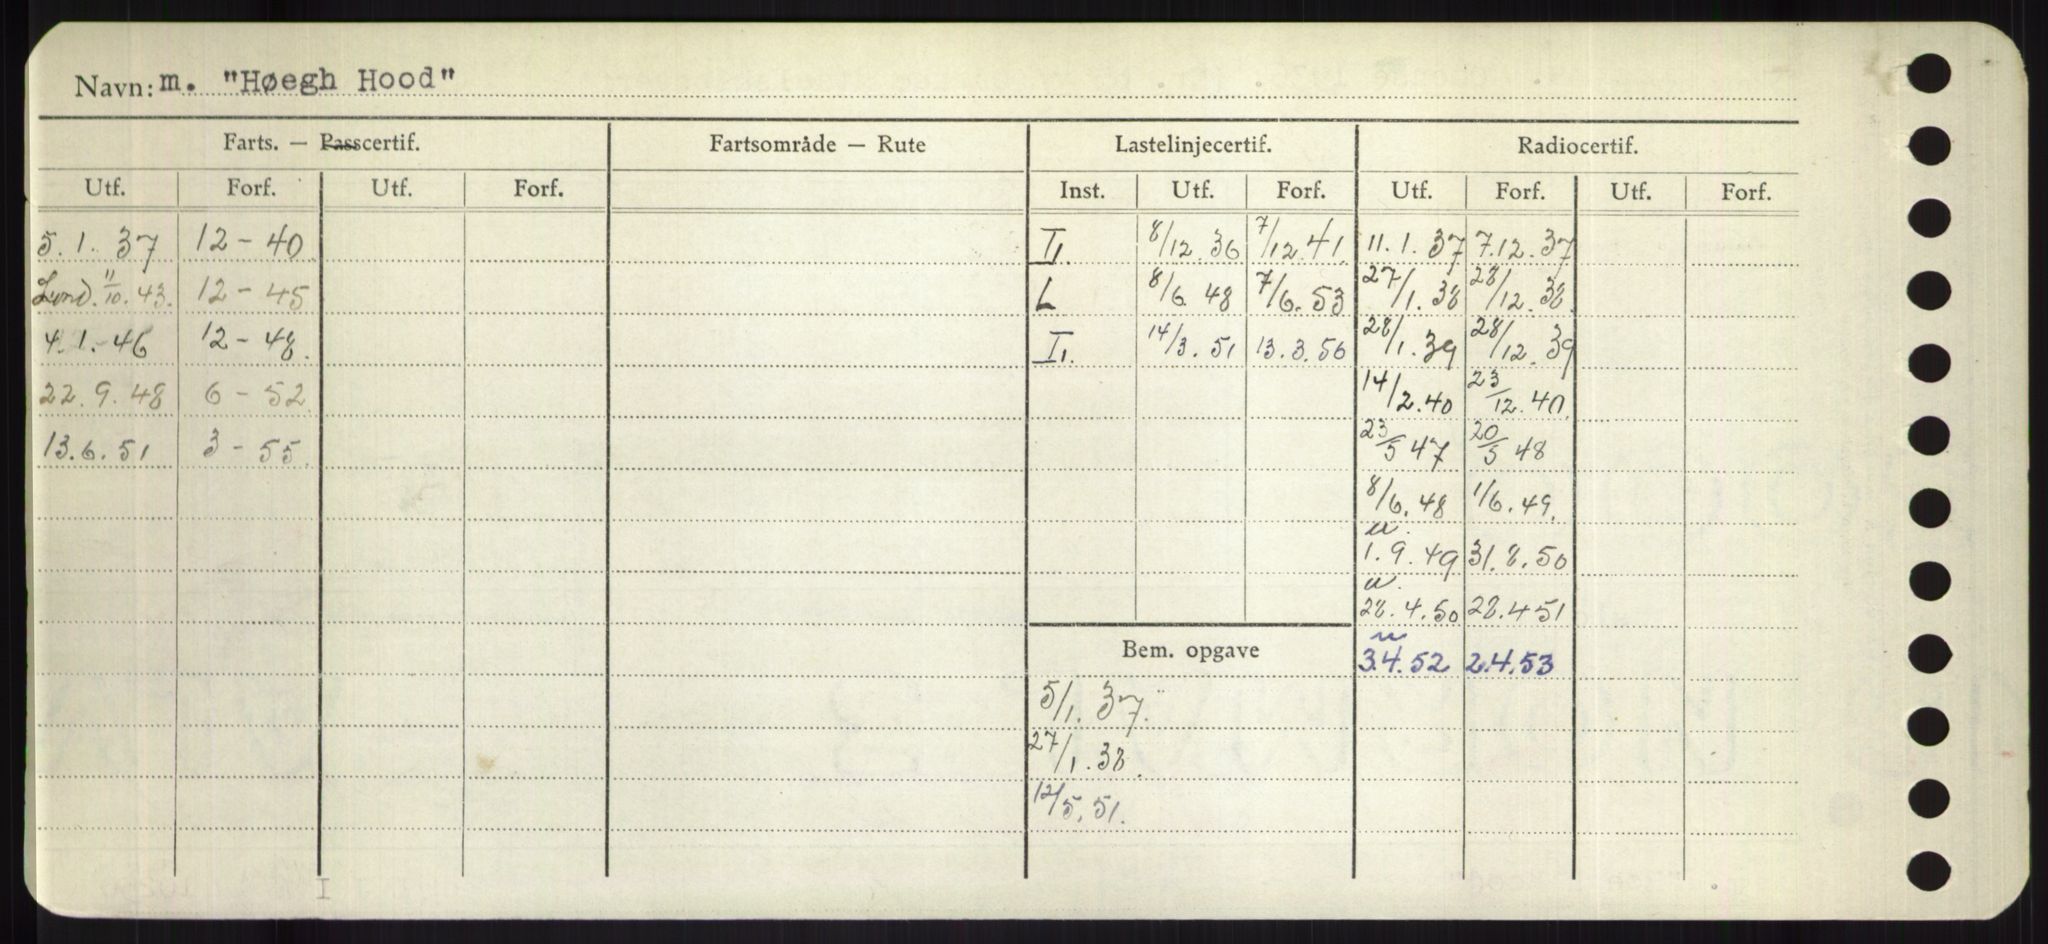 Navn: m. "Høegh Hood"
Farts. — Passcertif. Fartsområde — Rute Lastelinjecertif. Radiocertif.
Utf. Forf. Utf. Forf. Inst. Utf. Forf. Utf. Forf. Utf. Forf.
5. 1. 37 12-40 8/12 36 7/12 41 11. 1. 37 7.12.37
Lond. 11/10. 43. 12-45 L 8/6 48 7/6. 53 27/1. 38 28/12. 38.
4. 1. 46 12-48. 14/3. 51 13. 3. 56 28/1. 39 28/12. 39
22. 9. 48 6-52 14/2.40 23/12.40.
13. 6. 51 3-55. 23/5 47 20/5 48
8/6. 48 1/6. 49.
1. 9. 49 31. 8. 50
28. 4. 50 28. 4 51
Bem. opgave 3.4. 52 2.4.53
5/1. 37.
27/1. 38.
12/5. 51.
I